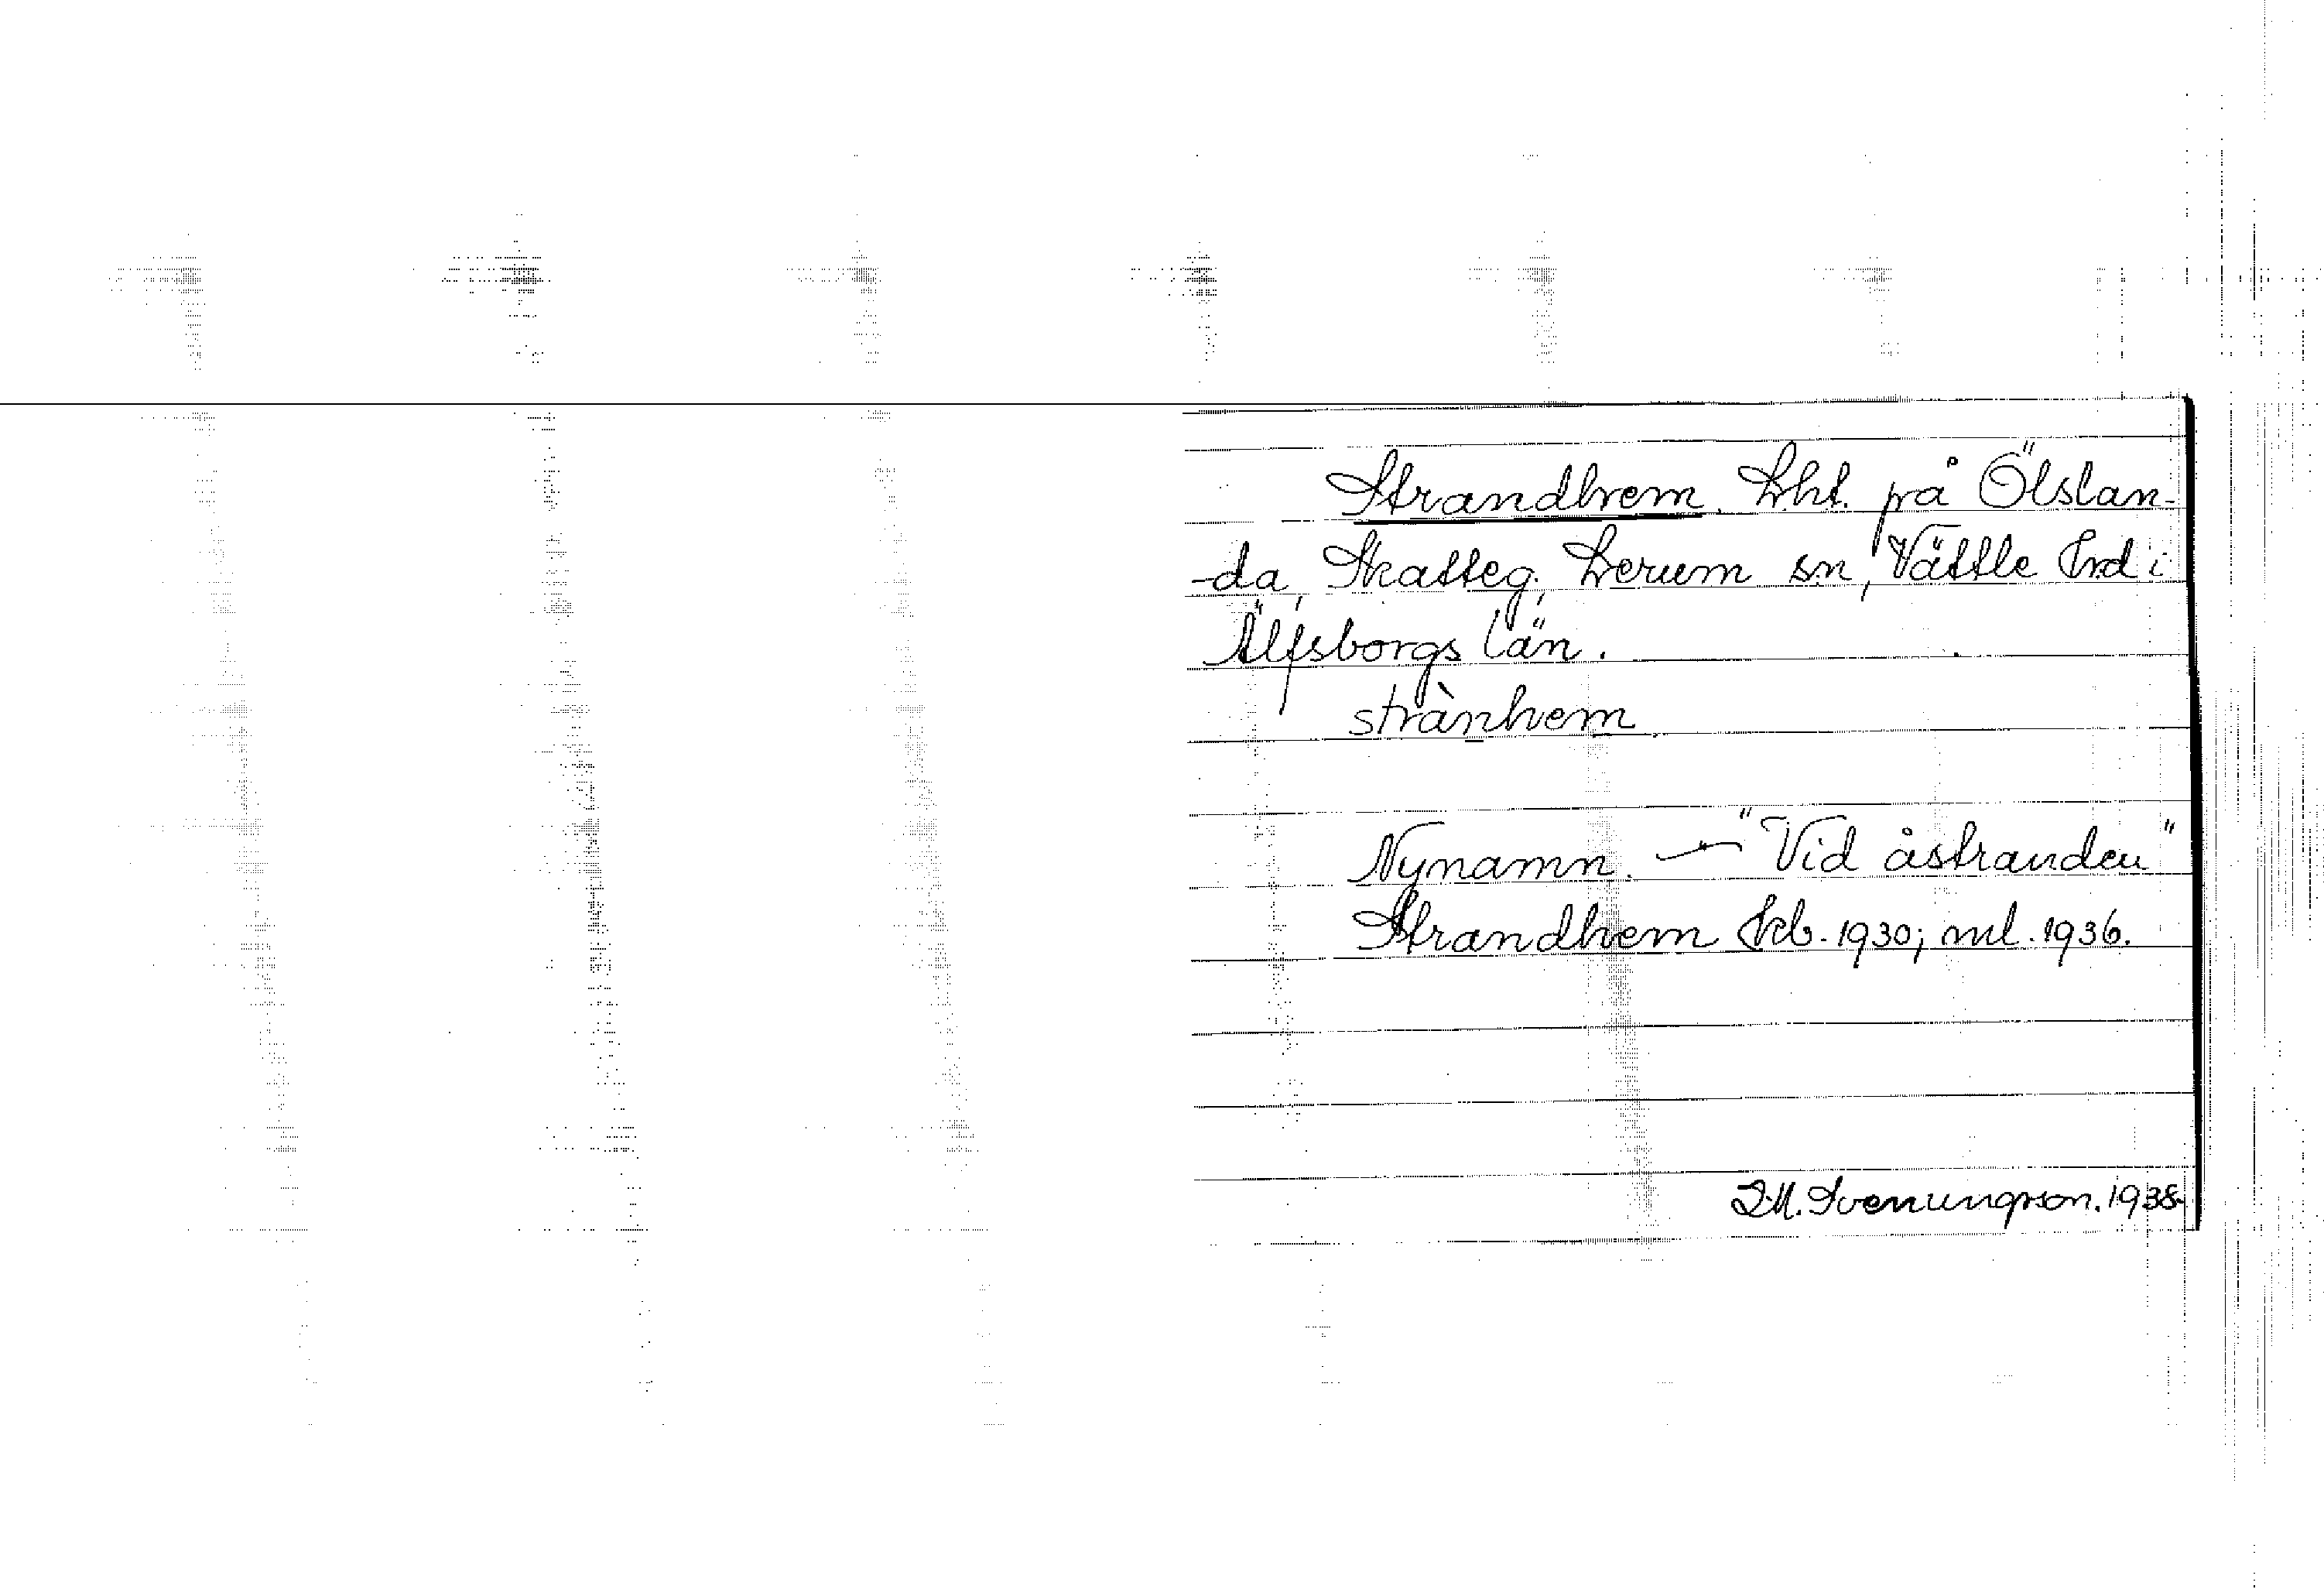 Strandhem. Lht. på Ölslan-
-da, Skatteg. Lerum sn, Vättle hrd i
Älfsborgs län.
strànhem
Nynamn. — "Vid åstranden"
Strandhem Jrb. 1930; ml. 1936.
I.M. Svenungson. 1938.